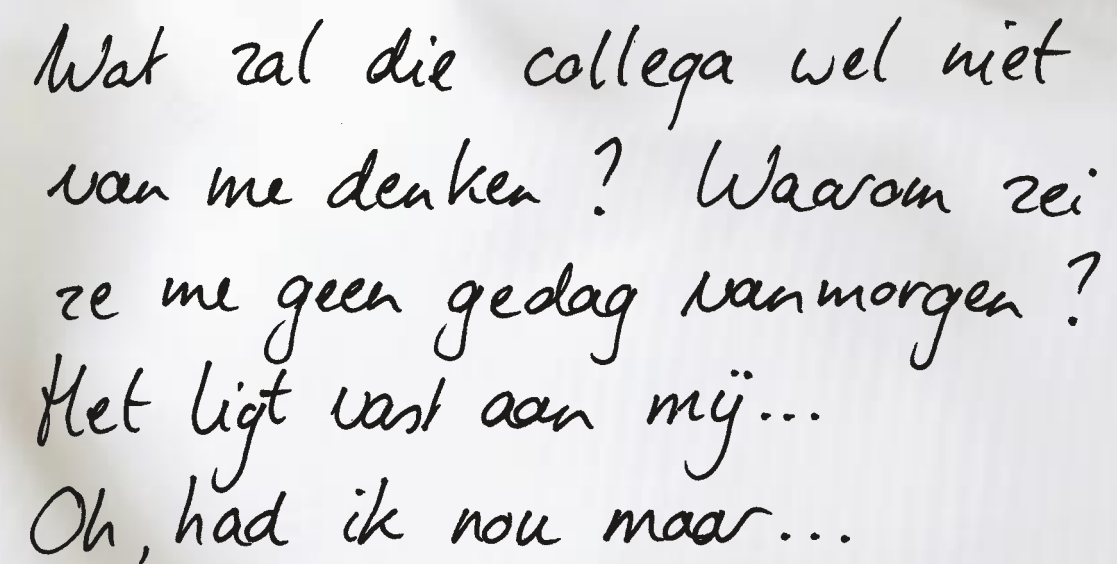 Wat zal die collega wel niet
van me denken? Waarom zei
ze me geen gedag vanmorgen?
Het ligt vast aan mij...
Oh, had ik nou maar...